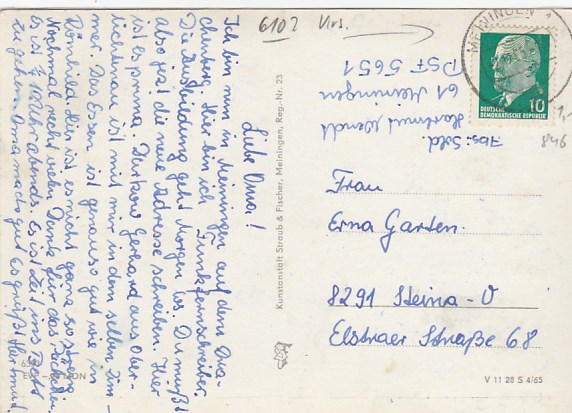 Liebe Oma!
Ich bin nun in Meiningen auf dem Dra-
chenberg. Hier bin ich Funkfernschreiber.
Die Ausbildung geht Morgen los. Du mußt
also jetzt die neue Adresse schreiben. Hier
ist es prima. Gerhard aus Ober-
lichtenau ist mit mir in den selben Zim-
mer. Das Essen ist genauso gut wie in
Römhild. Hier ist es nicht ganz so streng
Nochmal recht vielen Dank für das Päckchen.
Es ist ½ 10 Uhr abends. Es ist Zeit ins Bett
zu gehen. Oma machs gut Es grüßt Hartmut
6102 Virs.
Abs: Sold.
Hartmut Wendt
61 Meiningen
PSF 5651
MEININGEN 1
DEUTSCHE
DEMOKRATISCHE REPUBLIK
10
1,-
846
Frau
Erna Garten.
8291 Steina-V
Elstraer Straße 68
Kunstanstalt Straub & Fischer, Meiningen, Reg.-Nr. 23
V 11 28 S 4/65